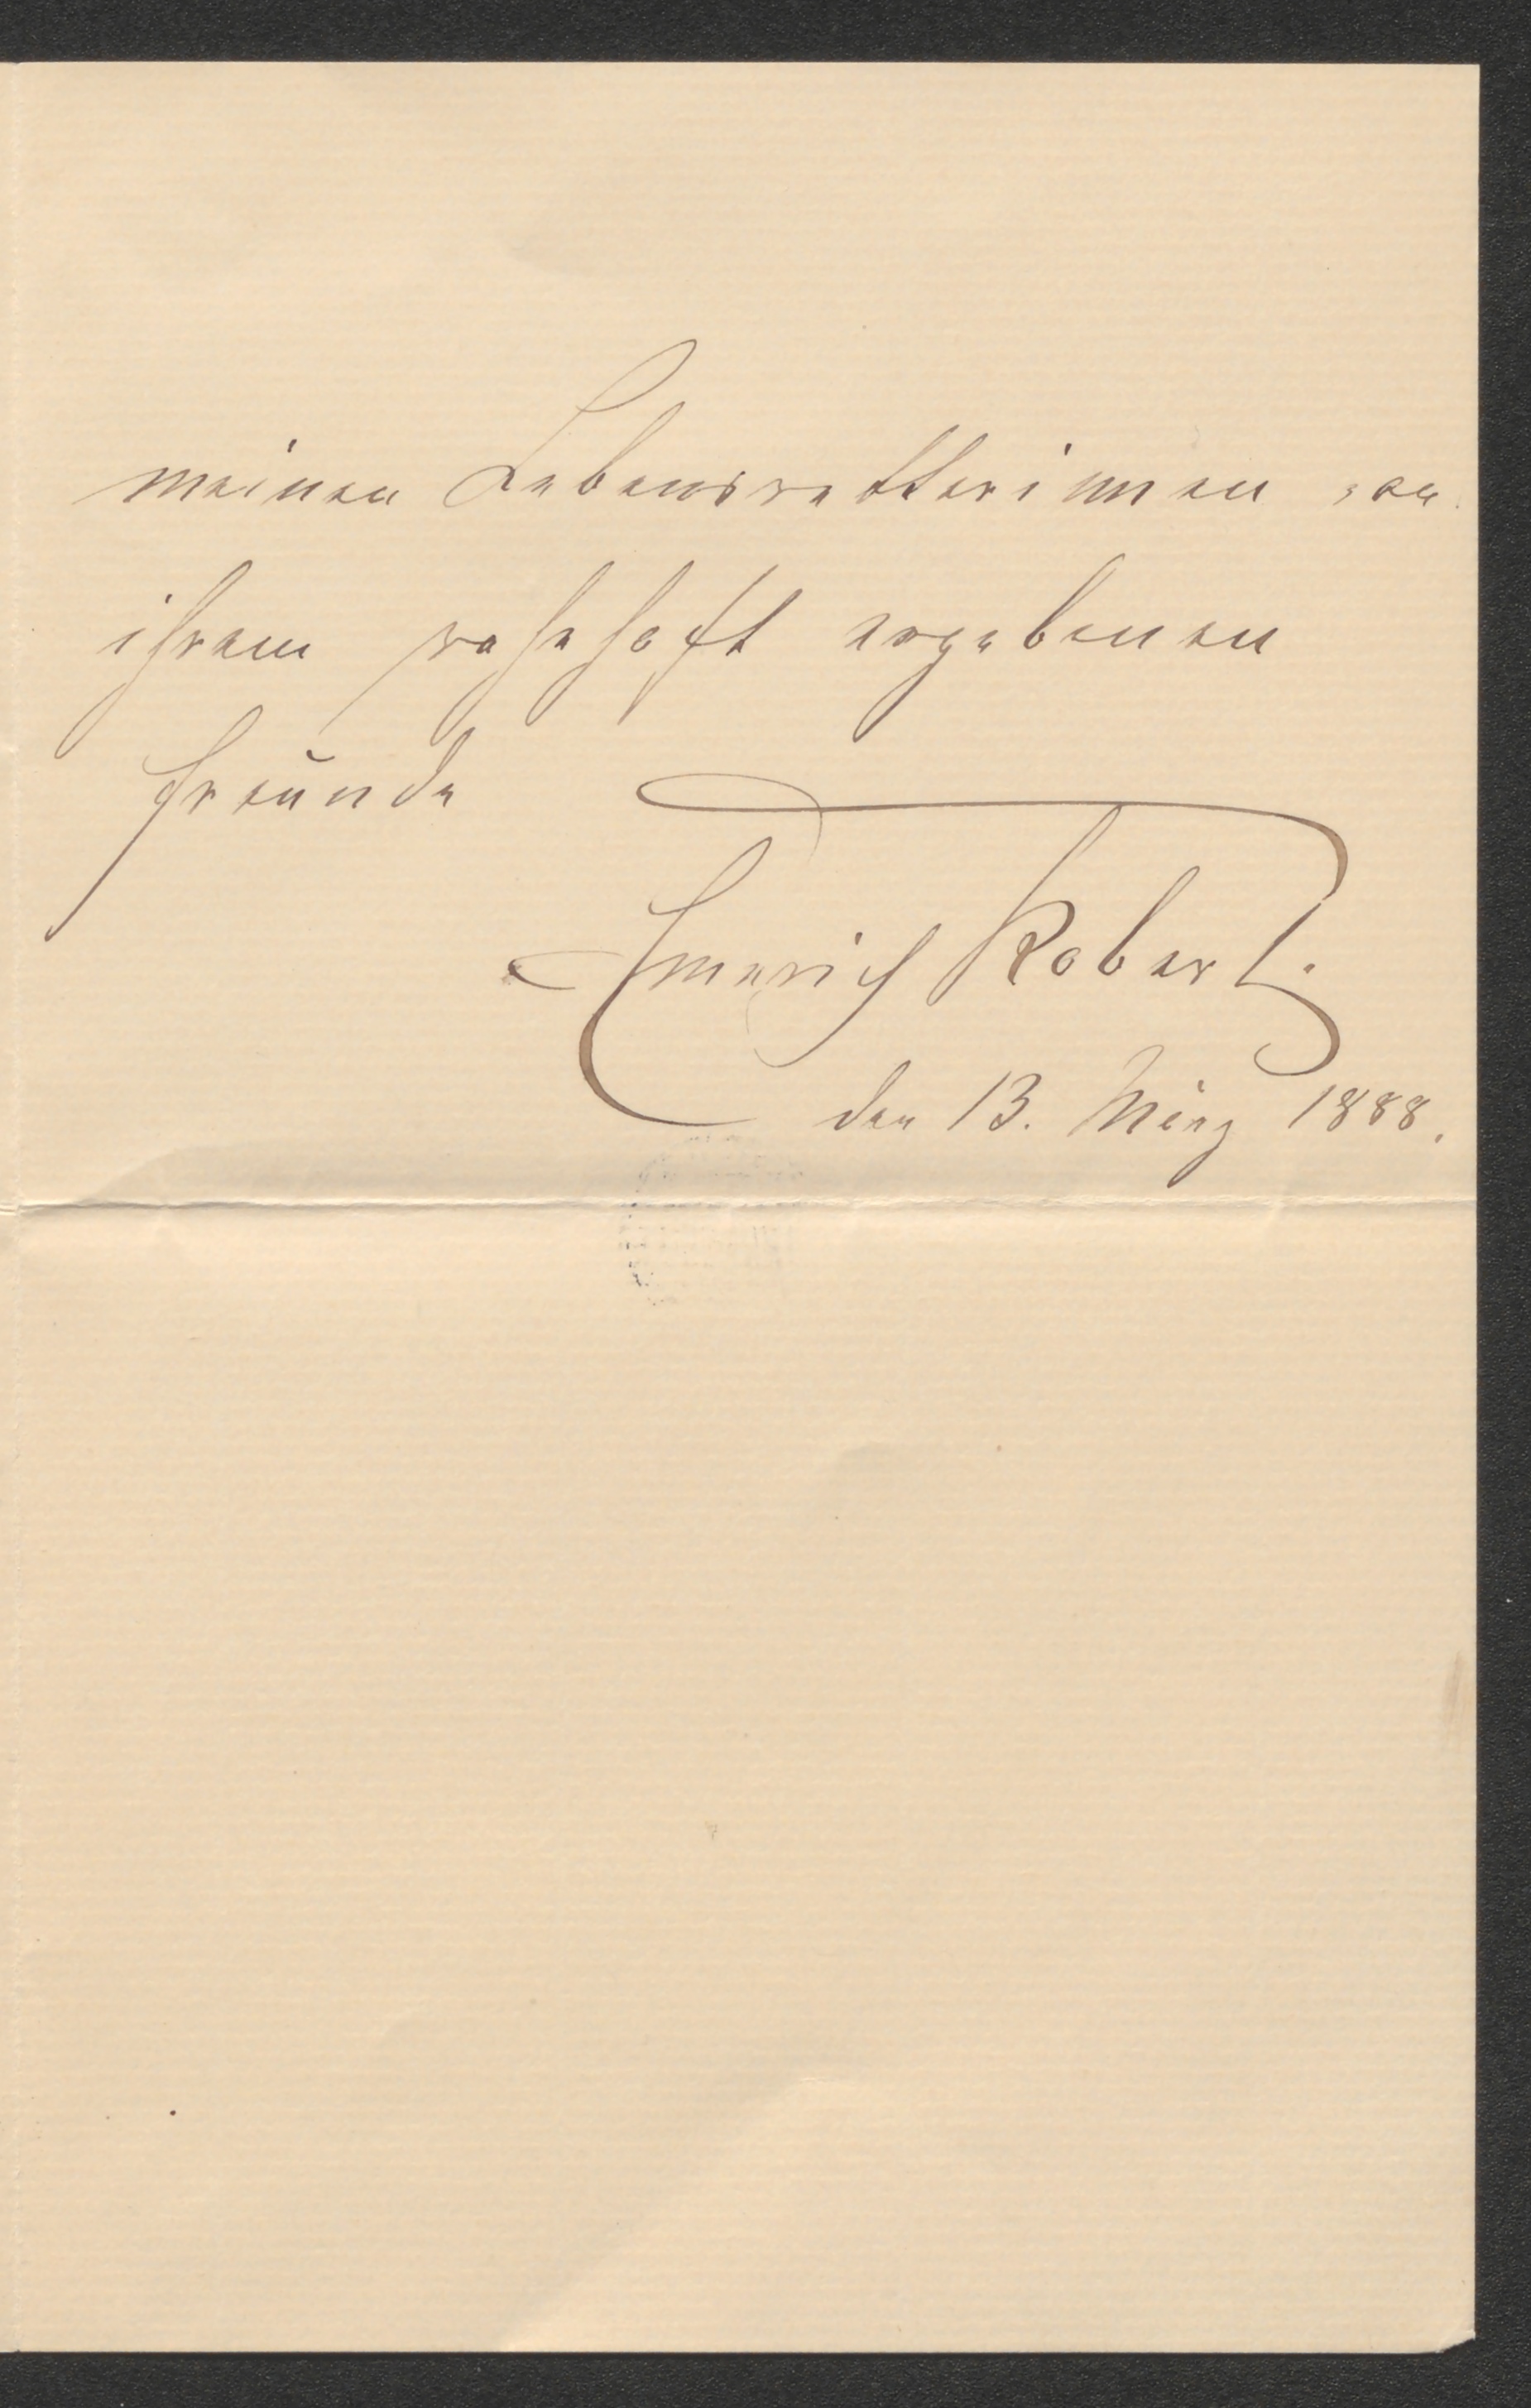 meinen Lebensretterinnen von
ihrem wahrhaft ergebenen
Freunde
Emerich Robert.
den 13. März 1888.